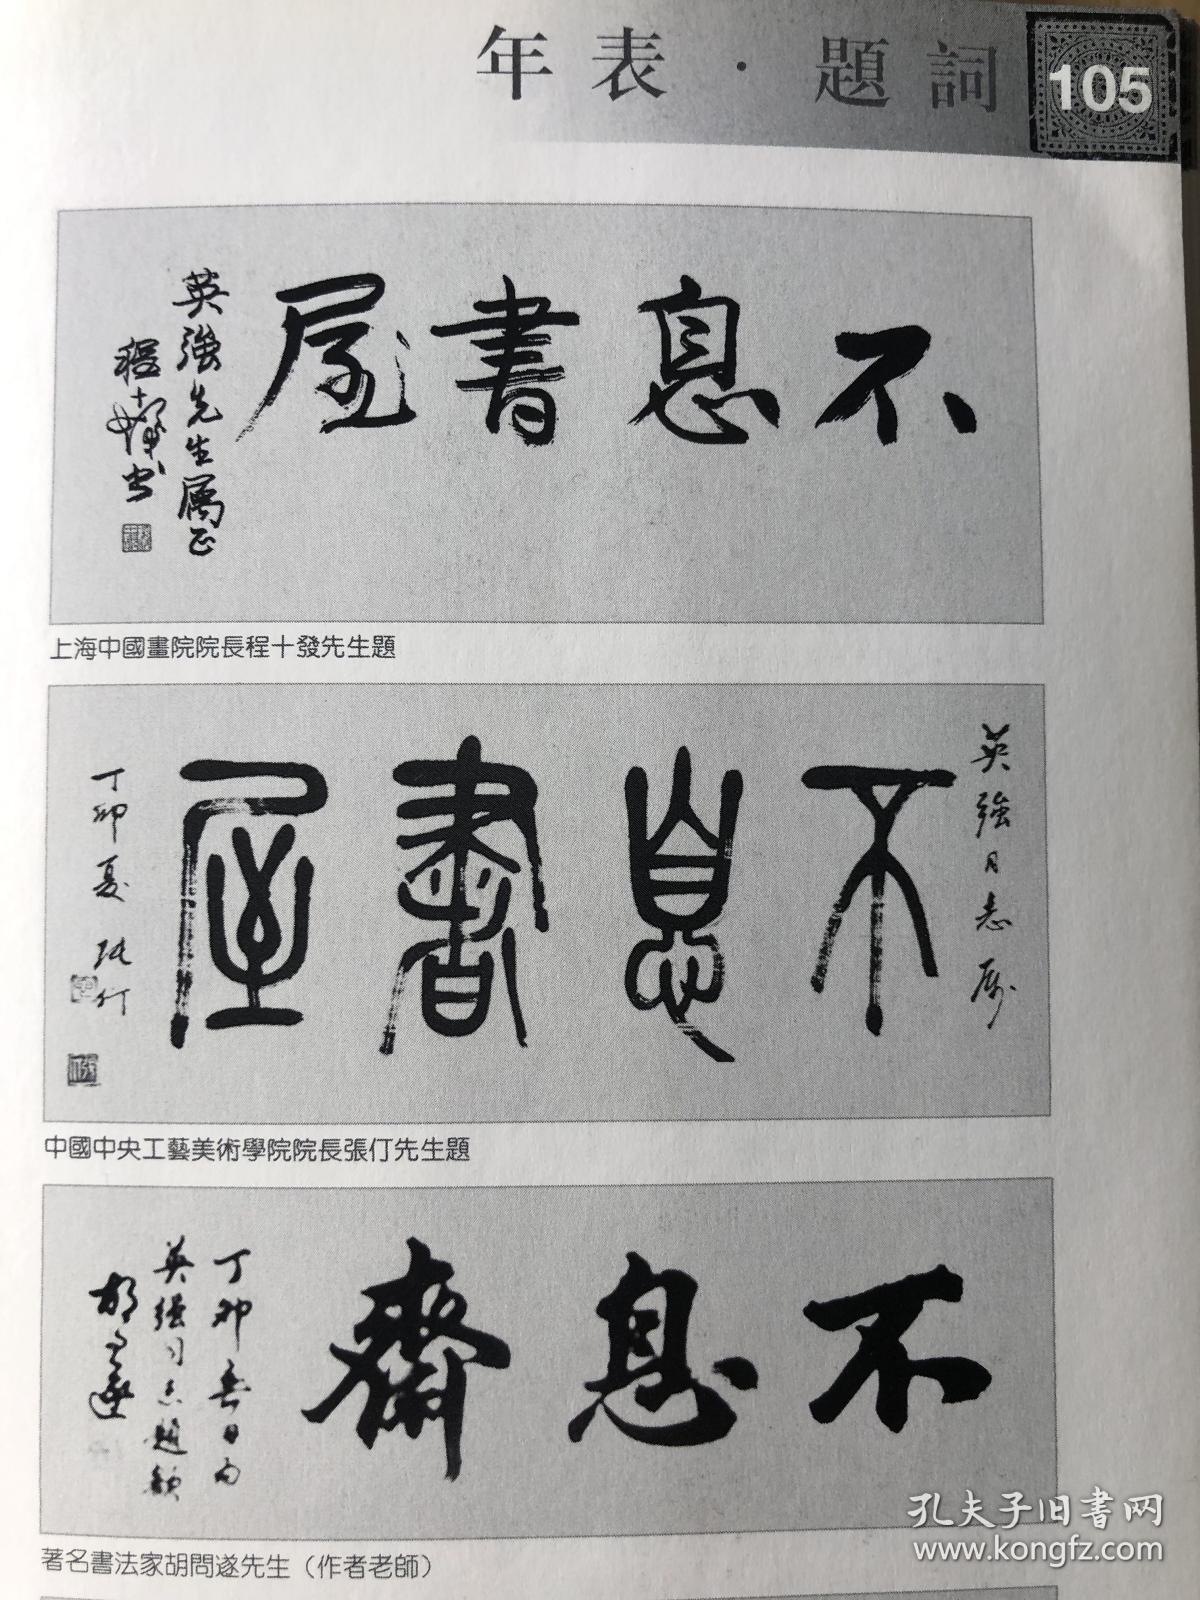 年表·題詞
105
不息書屋
英強先生属正
程十髮书
上海中國畫院院長程十發先生題
英強同志属
不息書屋
丁卯夏 張仃
中國中央工藝美術學院院長張仃先生題
不息齋
丁卯春日為
英强同志題額
胡問遂
著名書法家胡問遂先生（作者老師）
孔夫子旧書网
www.kongfz.com